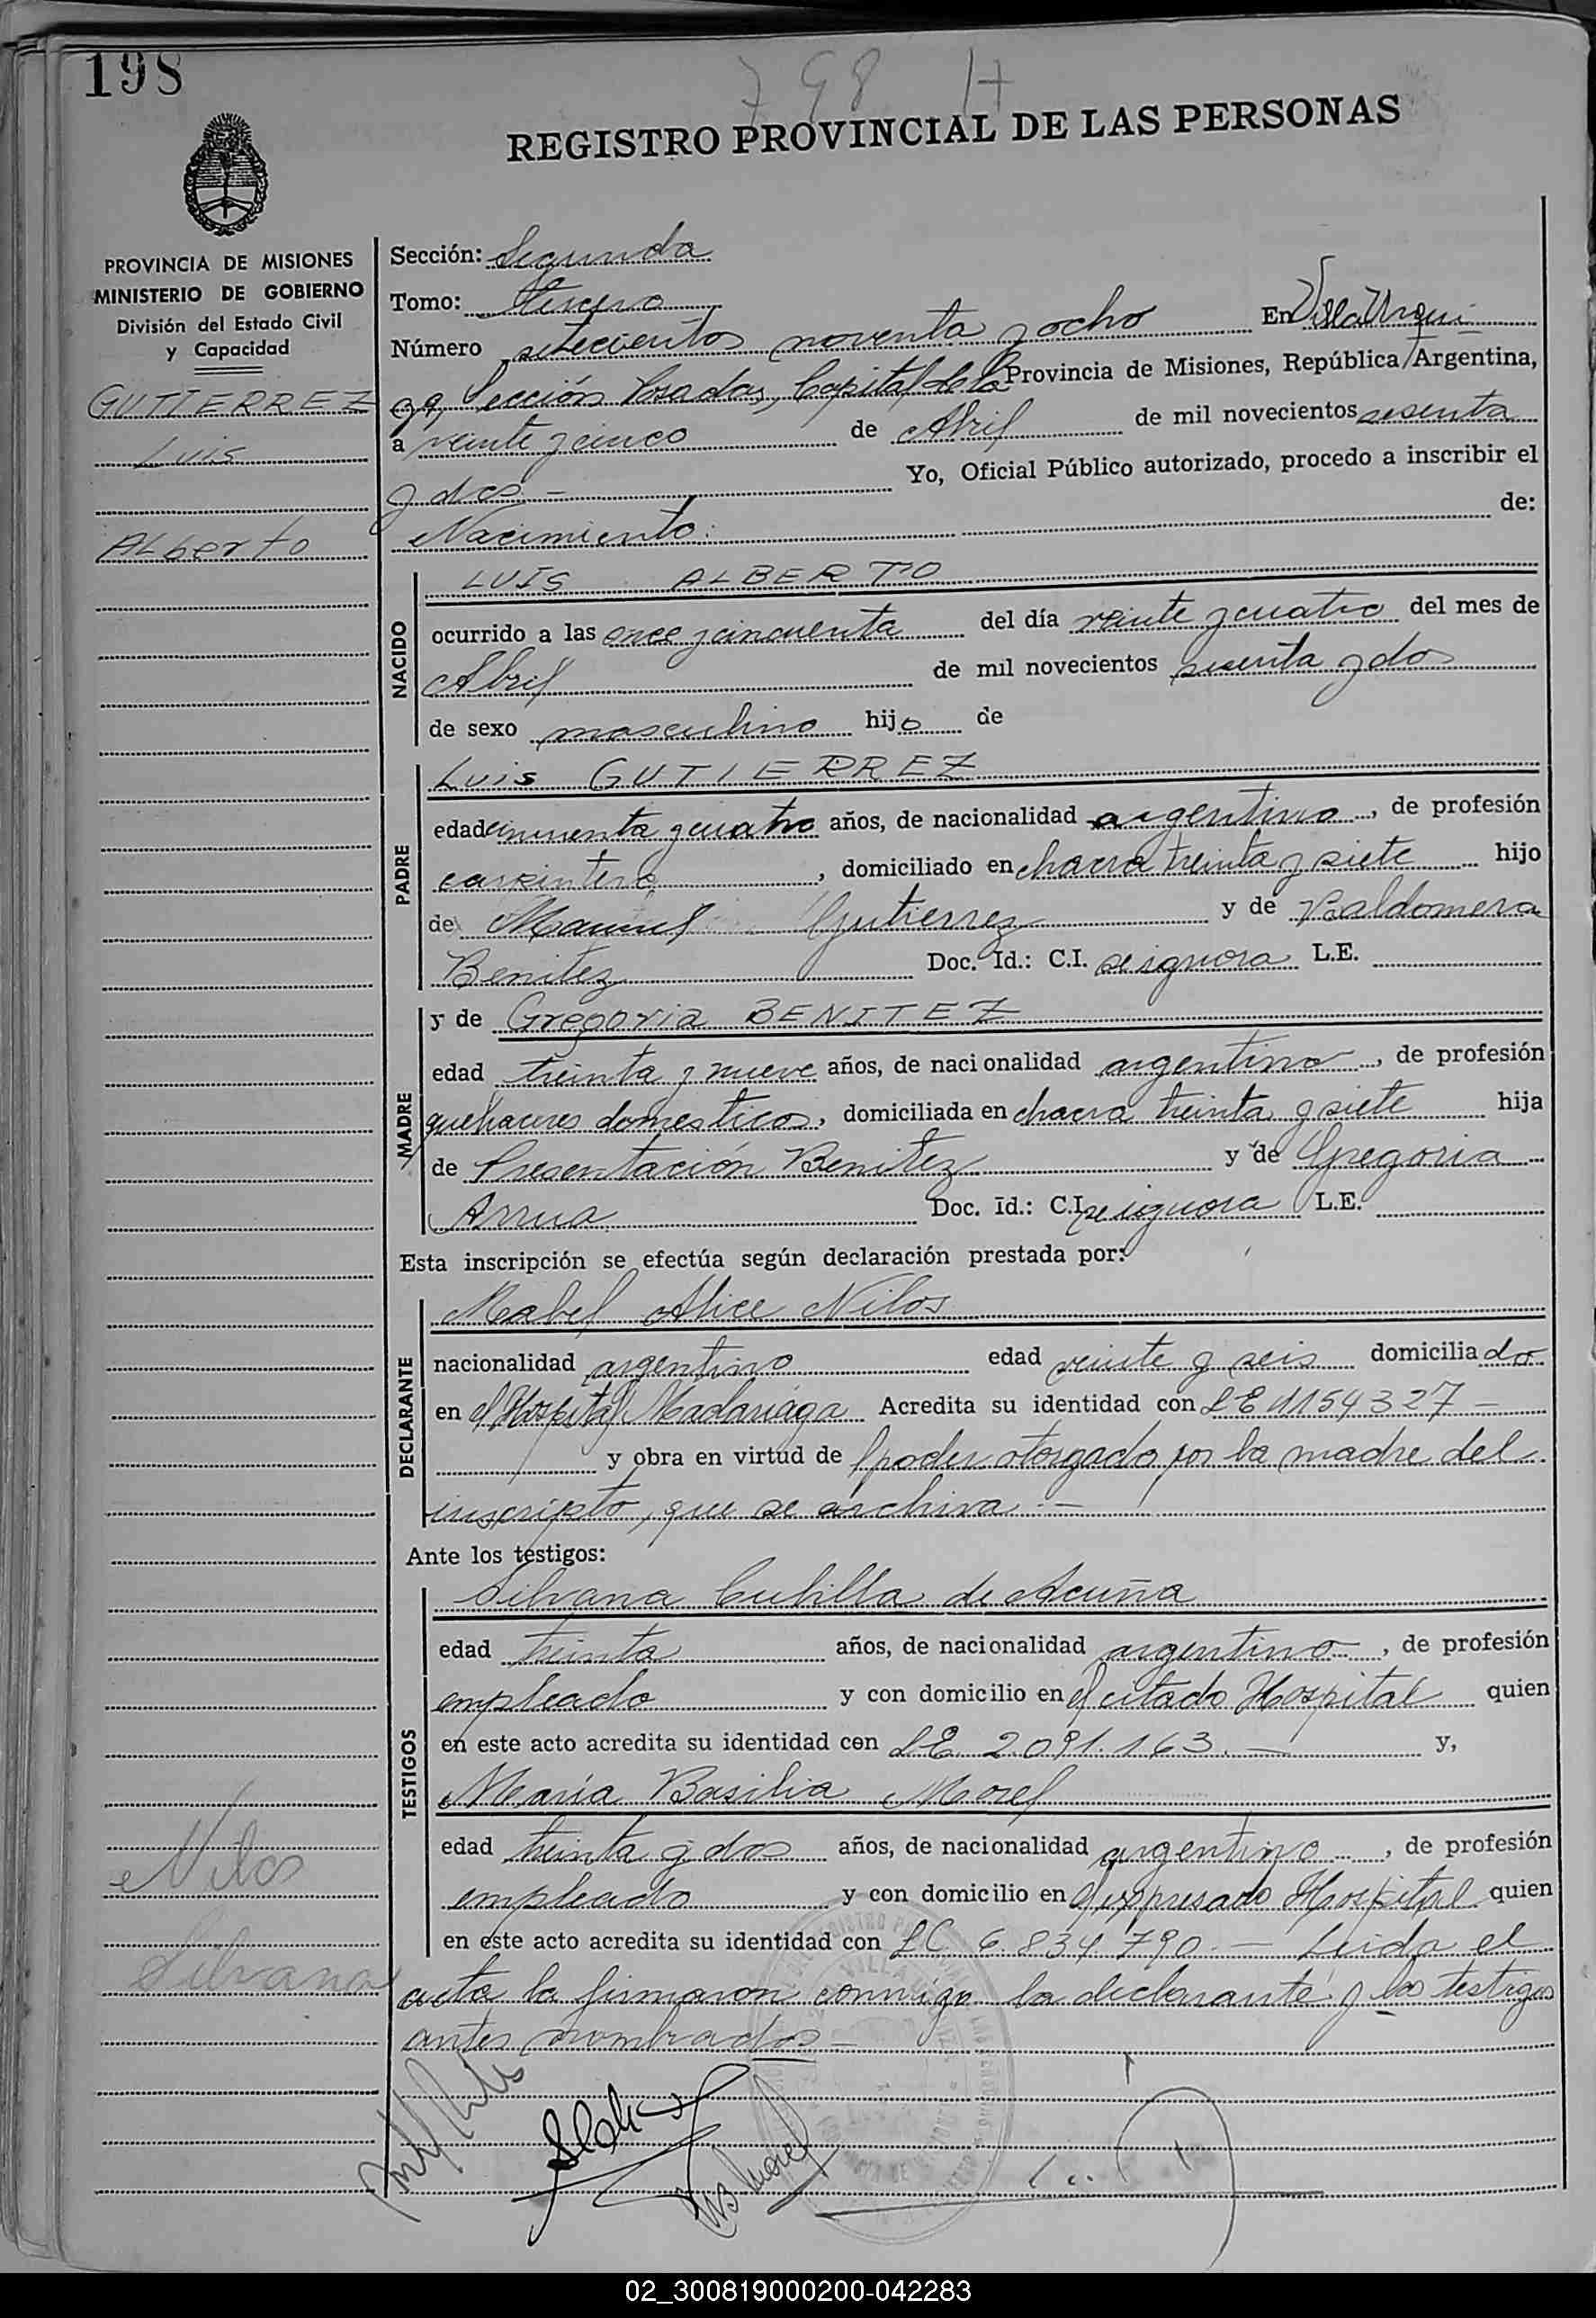 198
798 H
REGISTRO PROVINCIAL DE LAS PERSONAS
PROVINCIA DE MISIONES
MINISTERIO DE GOBIERNO
División del Estado Civil
y Capacidad
GUTIERREZ
Luis
ALberto
Sección: Segunda
Tomo: tercero
Número setecientos noventa y ocho En Villa Urqui
za, Sección Posadas, Capital de la Provincia de Misiones, República Argentina,
a veinte y cinco de Abril de mil novecientos sesenta
y dos - Yo, Oficial Público autorizado, procedo a inscribir el
Nacimiento: de:
NACIDO
LUIS ALBERTO
ocurrido a las once y cincuenta del día veinte y cuatro del mes de
Abril de mil novecientos sesenta y dos
de sexo masculino hijo de
PADRE
Luis GUTIERREZ
edad cincuenta y cuatro años, de nacionalidad argentino, de profesión
carpintero, domiciliado en chacra treinta y siete hijo
de Manuel Gutierrez y de Baldomera
Benitez Doc. Id.: C.I. se ignora L.E.
MADRE
y de Gregoria BENITEZ
edad treinta y nueve años, de nacionalidad argentino, de profesión
quehaceres domesticos, domiciliada en chacra treinta y siete hija
de Presentación Benitez y de Gregoria
Arrua Doc. Id.: C.I. se ignora L.E.
Esta inscripción se efectúa según declaración prestada por:
DECLARANTE
Mabel Alice Nilos
nacionalidad argentino edad veinte y seis domiciliado
en el Hospital Madariaga Acredita su identidad con LE 1154327 -
y obra en virtud de poder otorgado por la madre del
inscripto, que se archiva.-
Ante los testigos:
TESTIGOS
Silvana Cubilla de Acuña
edad treinta años, de nacionalidad argentino, de profesión
empleado y con domicilio en el citado Hospital quien
en este acto acredita su identidad con LE 2.091.163.- y,
María Basilia Morel
edad treinta y dos años, de nacionalidad argentino, de profesión
empleado y con domicilio en el expresado Hospital quien
en este acto acredita su identidad con LC 6.834.790.- Leida el
acta la firmaron conmigo la declarante y los testigos
antes nombrados -
Nilos
Silvana
02_300819000200-042283